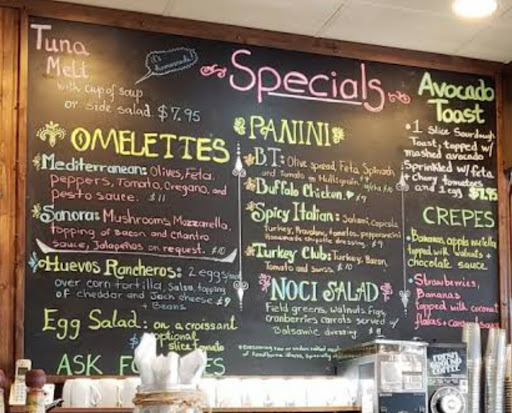 Tuna
Melt
it's homemade!
with cup of soup
or side salad $7.95
Specials
OMELETTES
Mediterranean: Olives, Feta,
peppers, Tomato, Oregano, and
pesto sauce. $11
Sonora: Mushrooms, Mozzarella,
topping of Bacon and cilantro
sauce, Jalapeños on request. $10
Huevos Rancheros: 2 eggs
over corn tortilla, salsa, topping
of cheddar and Jack cheese $9
+ Beans
Egg Salad: on a croissant
optional
slice tomato
ASK FO
PANINI
BT: Olive spread, Feta, Spinach,
and Tomato on Multigrain
Buffalo Chicken
Spicy Italian: Salami, Capicola,
Turkey, Provolone, tomatoes, pepperoncini
homemade chipotle dressing $9
Turkey Club: Turkey, Bacon,
Tomato and Swiss $10
NOCI SALAD
Field greens, walnuts, Figs,
cranberries carrots served w/
Balsamic dressing $9
Avocado
Toast
1 slice Sourdough
Toast, topped w/
mashed avocado
Sprinkled w/feta
Cherry tomatoes
and 1 egg $7.95
CREPES
Bananas, apple, nutella
topped with walnuts +
chocolate sauce
Strawberries,
Bananas
topped with coconut
flakes +
FRESH
GROUND
COFFEE